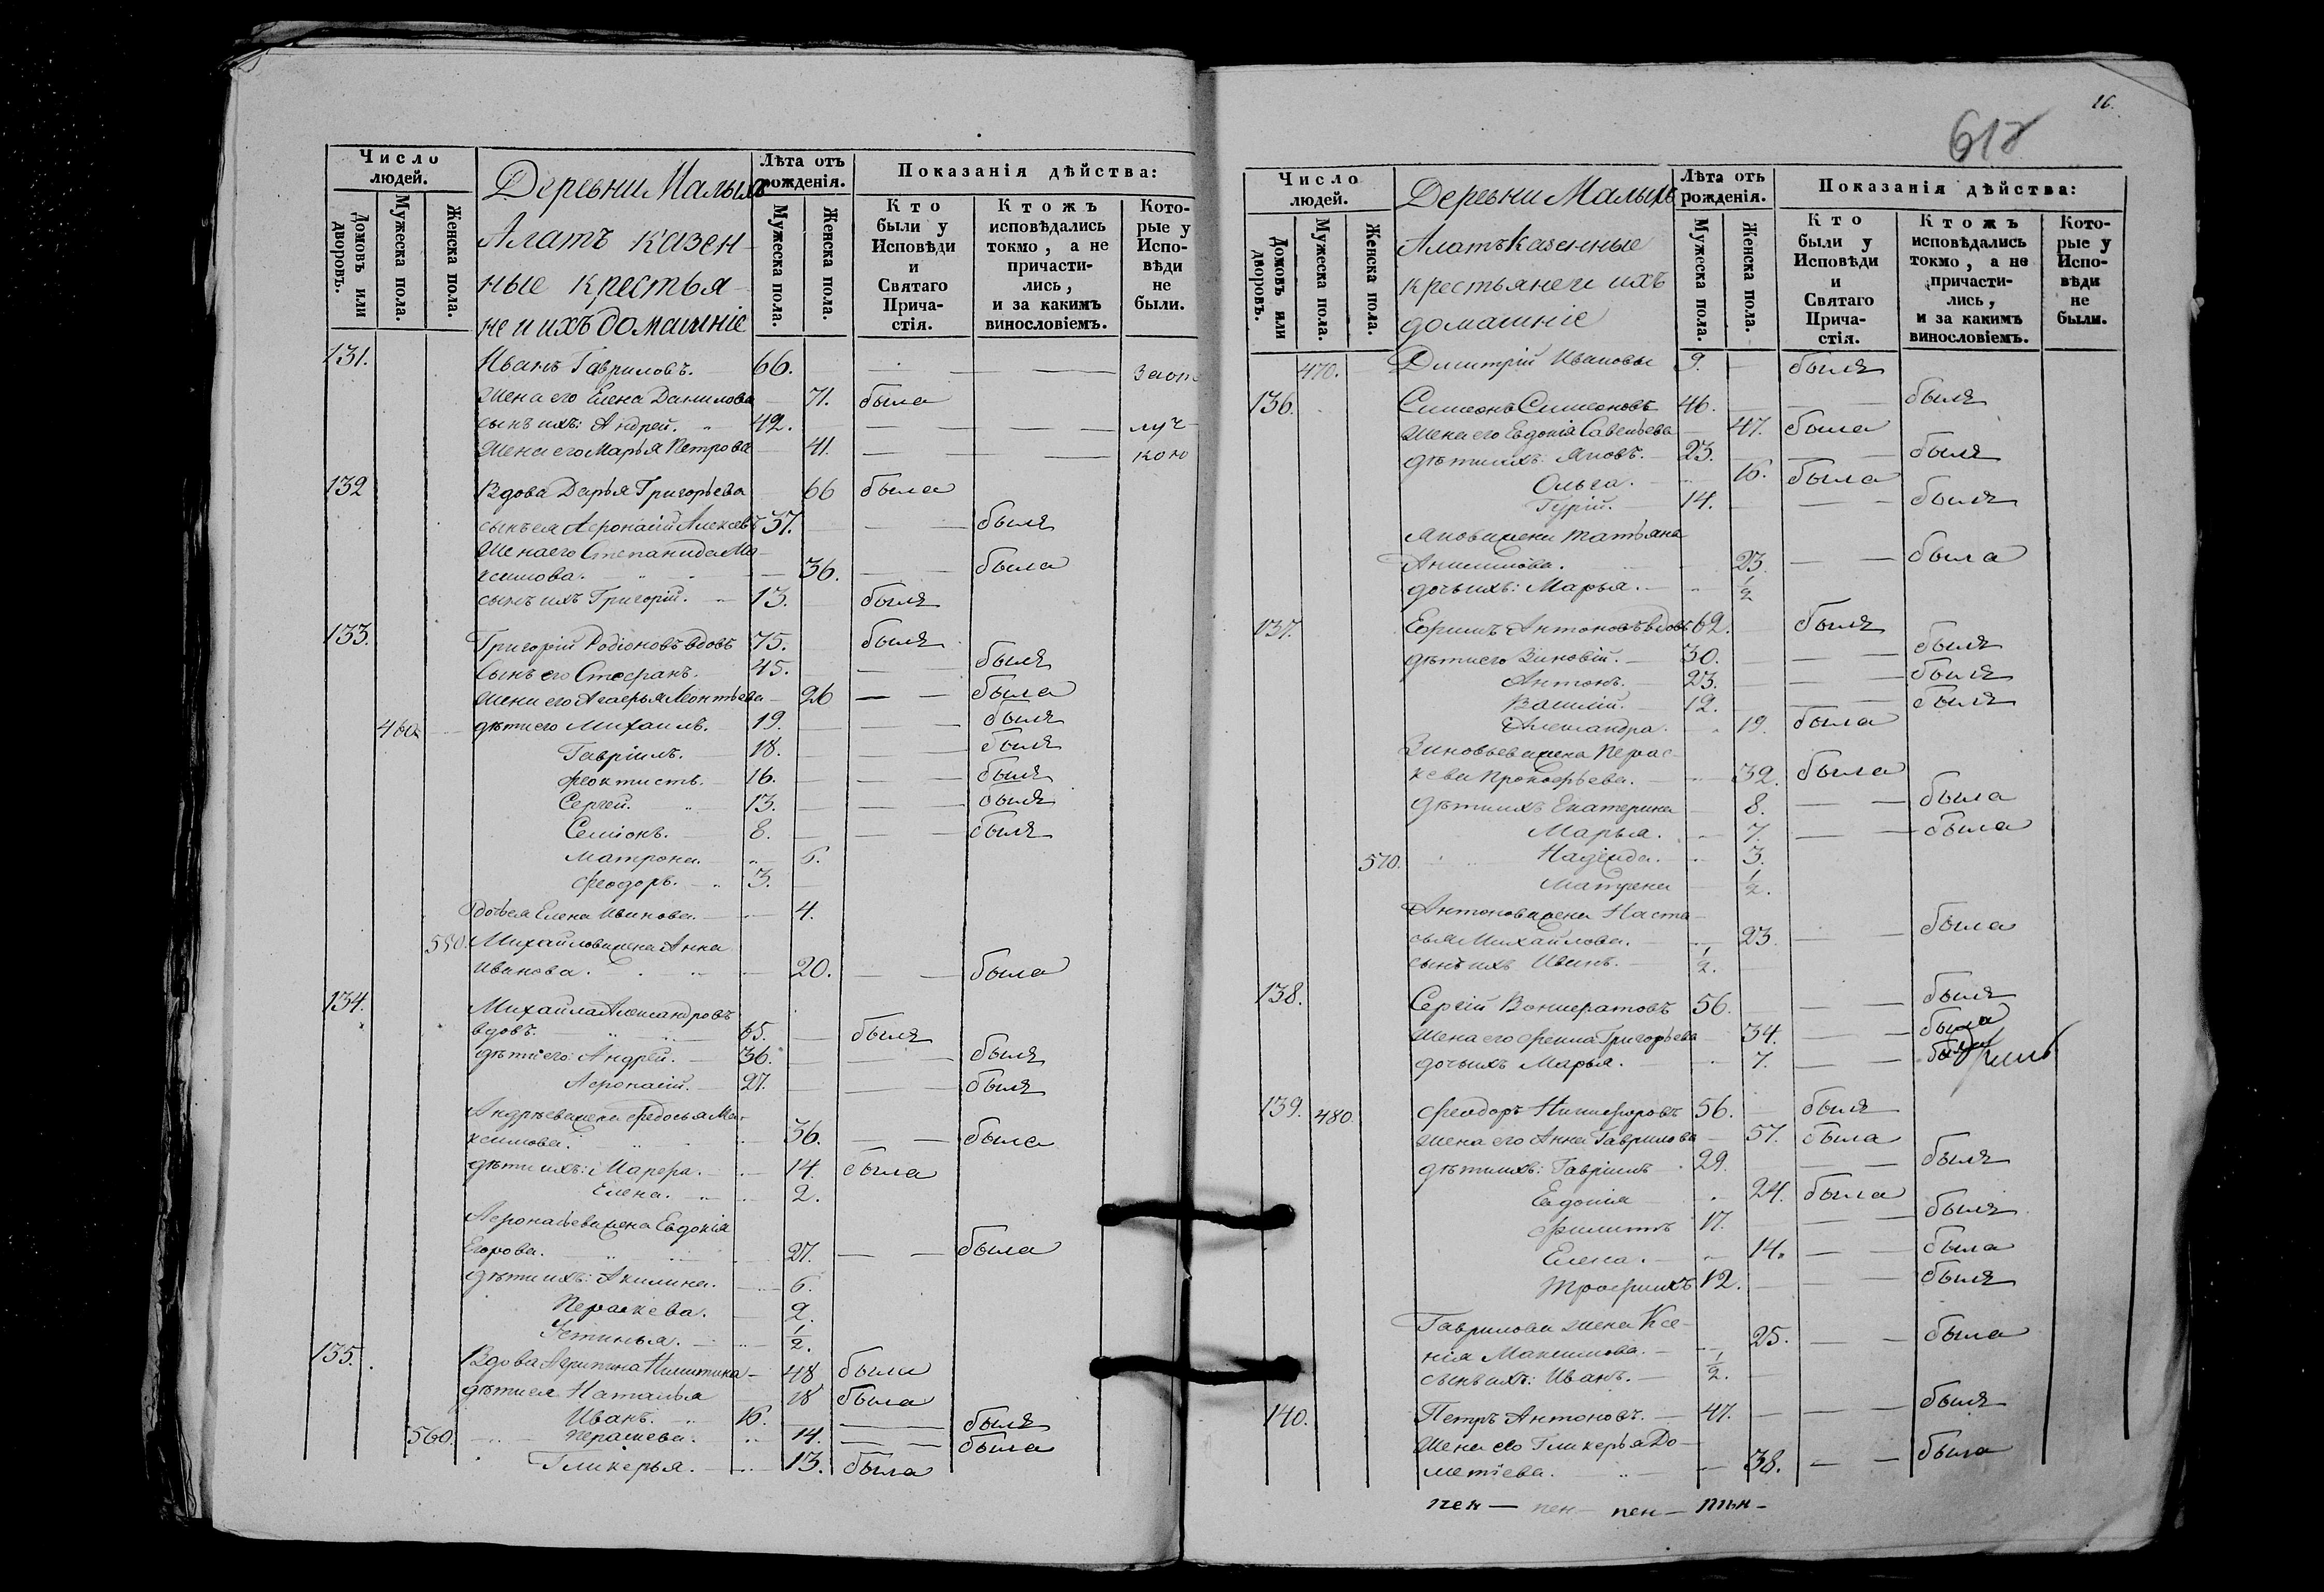 Число людей.
Домовъ или дворовъ.
Мужеска пола.
Женска пола.
Деревни Малыхъ
Алатъ казен-
ные крестья-
не и ихъ домашніе
Лѣта отъ рожденія.
Мужеска пола.
Женска пола.
Показанія дѣйства:
Кто были у Исповѣди и Святаго Прича-стія.
Ктожъ исповѣдались токмо, а не причасти-лись, и за какимъ винословіемъ.
Кото-рые у Испо-вѣди не были.
131. Иванъ Гавриловъ. 66.
Жена его Елена Данилова 71. была
сынъ ихъ: Андрей. 42.
Жена его Марья Петрова 41.
132 Вдова Дарья Григорьева 66 была
сынъ ея Афонасій Алексѣевъ 37. былъ
Жена его Степанида Ма-
ксимова. 36. была
сынъ ихъ Григорій. 13. былъ
133. Григорій Родіоновъ вдовъ 75. былъ
Сынъ его Стефанъ. 45. былъ
Жена его Агафья Леонтьева 26 была
460 дѣти его Михаилъ. 19. былъ
Гавріилъ. 18. былъ
Феоктистъ. 16. былъ
Сергей. 13. былъ
Семіонъ. 8. былъ
Матрона. 6.
Феодоръ. 3.
Елена Иванова. 4.
550. Михайлова жена Анна
Иванова. 20. была
134. Михайла Александровъ
вдовъ. 65. былъ
дѣти его: Андрей. 36. былъ
Афонасій. 27. былъ
Андрѣева жена Федосья Ма-
ксимова. 36. была
дѣти ихъ: Марфа. 14. была
Елена. 2.
Афонасьева жена Евдокія
Егорова. 27. была
дѣти ихъ: Акилина. 6.
Пераскева. 2.
Устинья. 1/2.
135. Вдова Агрипина Никитина 48 была
дѣти ея Наталья 18 была
Иванъ. 16. былъ
560. Пераскева. 14. была
Гликерья. 13. была
16.
618
Число людей.
Домовъ или дворовъ.
Мужеска пола.
Женска пола.
Деревни Малыхъ
Алатъ казенные
крестьяне и ихъ
домашніе
Лѣта отъ рожденія.
Мужеска пола.
Женска пола.
Показанія дѣйства:
Кто были у Исповѣди и Святаго Прича-стія.
Ктожъ исповѣдались токмо, а не причасти-лись, и за какимъ винословіемъ.
Кото-рые у Испо-вѣди не были.
470. Дмитрій Ивановъ 9. былъ
136. Симеонъ Симеоновъ 46. былъ
Жена его Евдокія Савельева 47. была
дѣти ихъ: Яковъ. 23. былъ
Ольга. 16. была
Гурій. 14. былъ
Яковa жена Татьяна
Анисимова. 23. была
дочь ихъ: Марья. 1/2
137. Ефимъ Антоновъ вдовъ 62. былъ
дѣти его Зиновій. 30. былъ
Антонъ. 23. былъ
Василій. 12. былъ
Александра. 19. была
Зиновьева жена Перас-
кева Прокофьева. 32. была
дѣти ихъ Екатерина 8. была
Марья. 7. была
570. Надежда. 3.
Матрена 1/2.
Антонова жена Наста-
сья Михайлова. 23. была
сынъ ихъ Иванъ. 1/2.
138. Сергій 56. былъ
Жена его Фекла Григорьева 34. была
дочь ихъ Марья. 7.
139. 480. Феодоръ Никифоровъ 56. былъ
Жена его Анна Гаврилова 57. была
дѣти ихъ: Гавріилъ 29. былъ
Евдокія 24. была
Филиппъ 17. былъ
Елена. 14. была
Трофимъ 12. былъ
Гаврилова жена Ксе-
нія Максимова. 25. была
сынъ ихъ: Иванъ. 1/2.
140. Петръ Антоновъ. 47. былъ
Жена его Гликерья До-
метіева. 38. была